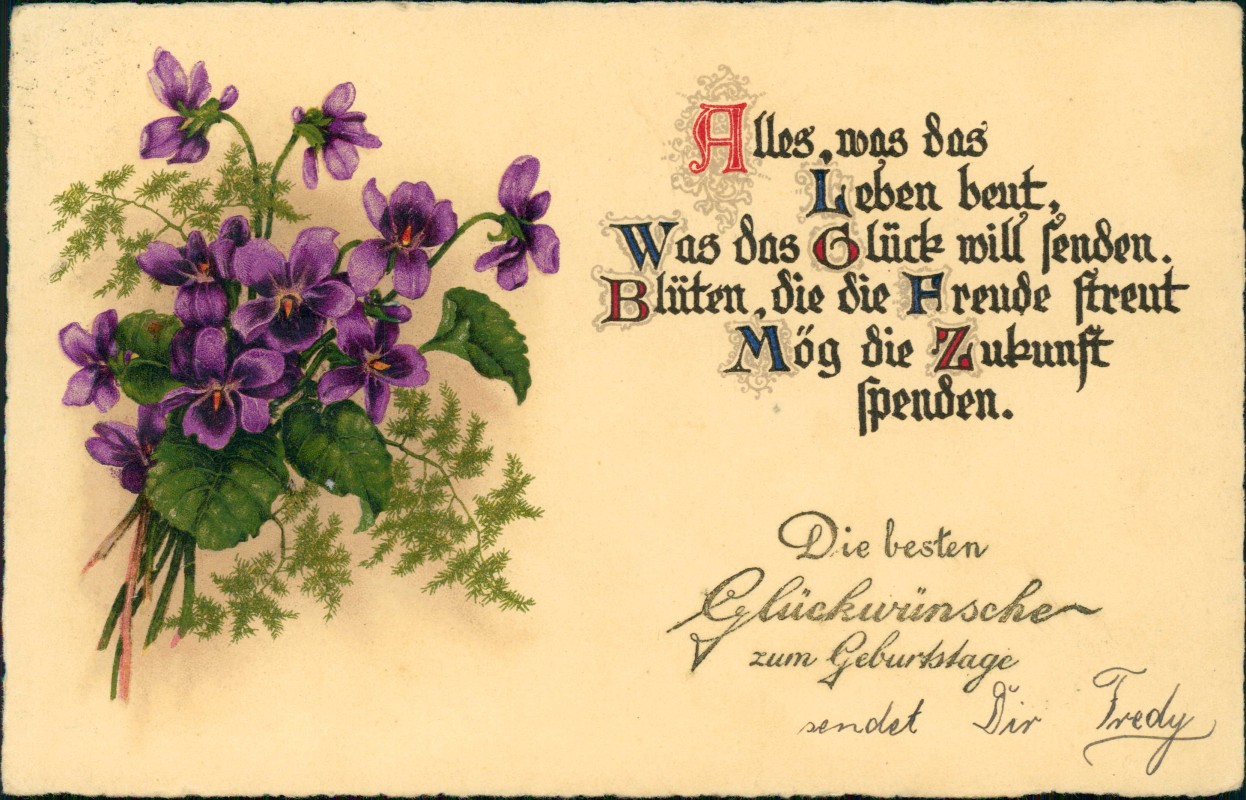 Alles, was das
Leben beut,
Was das Glück will senden.
Blüten, die die Freude streut
Mög die Zukunft
spenden.
Die besten
Glückwünsche
zum Geburtstage
sendet Dir Fredy